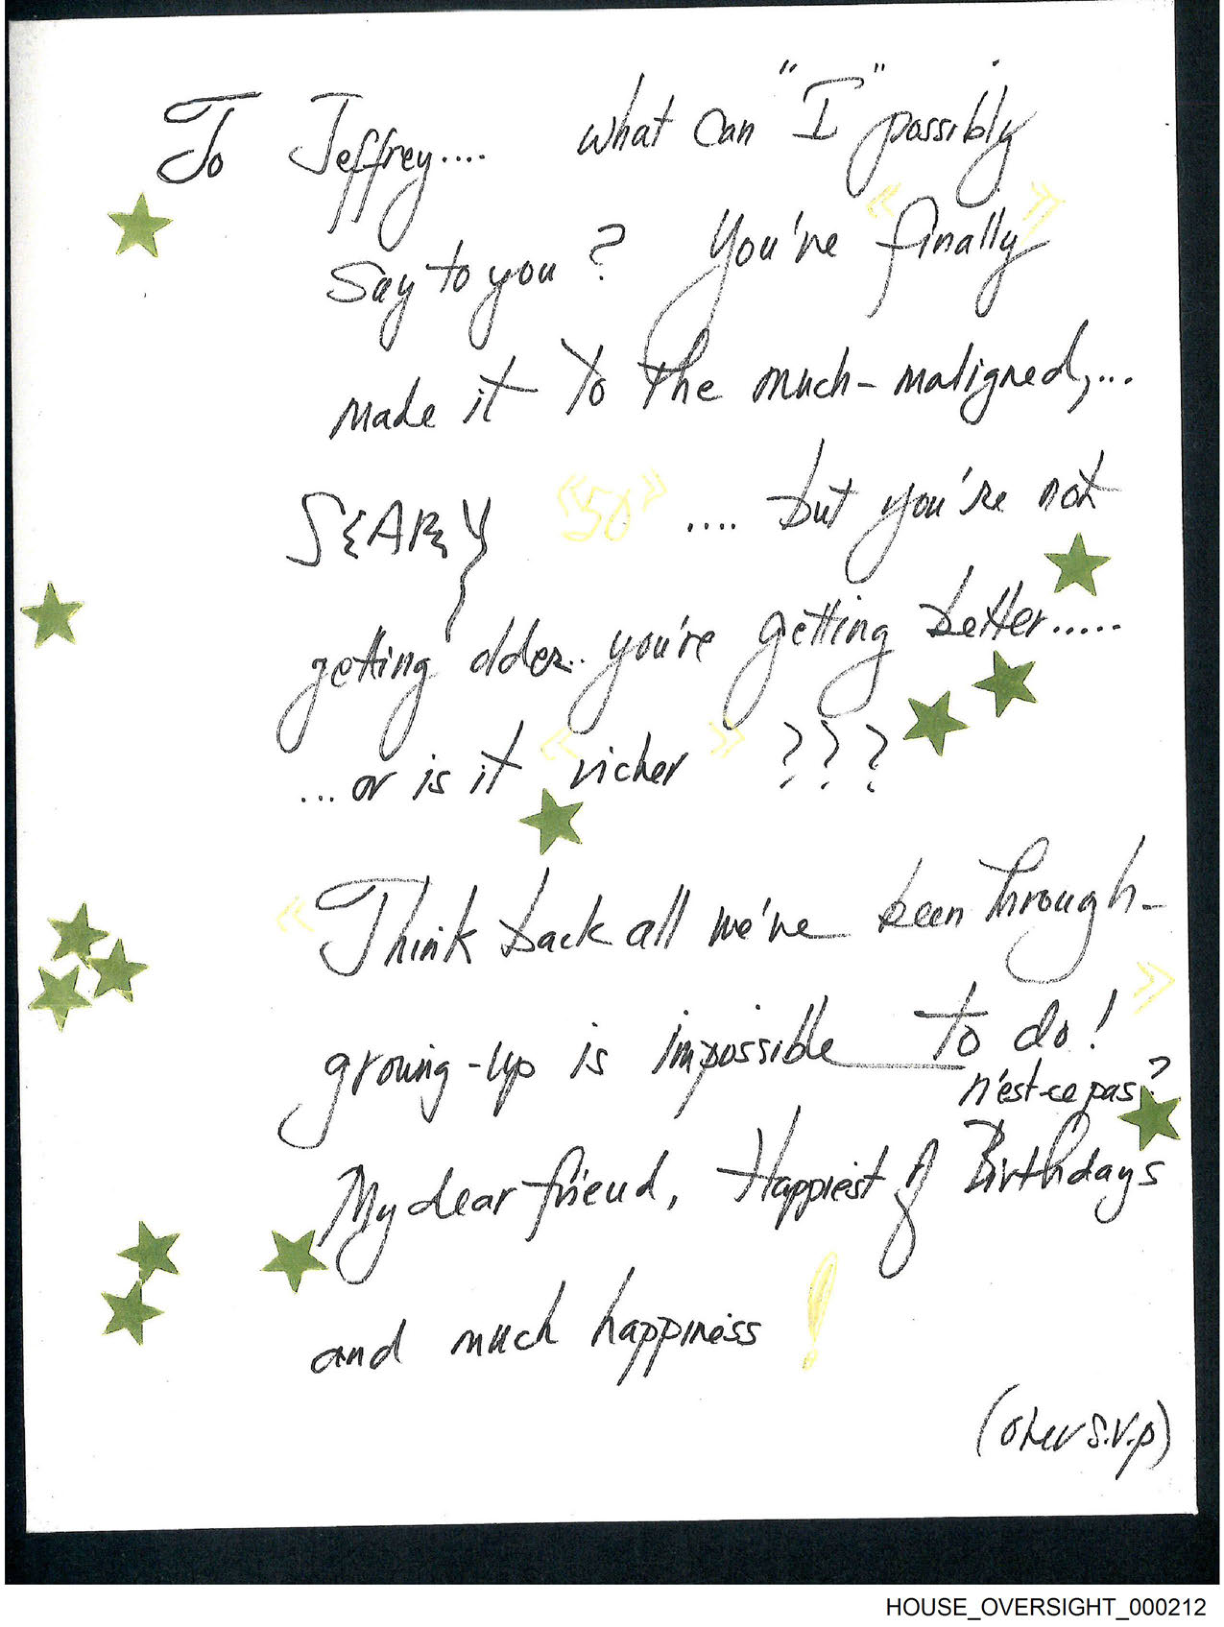 To Jeffrey.... what can "I" possibly
say to you? You're "finally"
made it to the much-maligned,...
SCARY "50" .... but you're not
getting older.. you're getting better.....
...or is it "richer" ???
"Think back all we've been through-
growing-up is impossible to do!"
n'est-ce pas?
My dear friend, Happiest of Birthdays
and much happiness!
(over s.v.p)
HOUSE_OVERSIGHT_000212